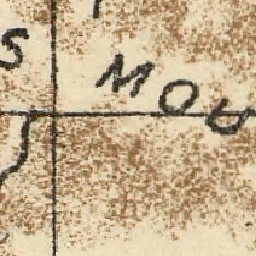 S MOU